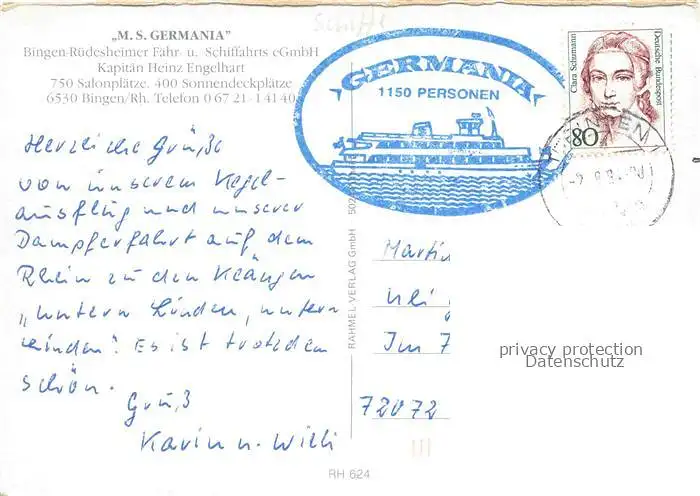 Schiffe
„M. S. GERMANIA"
Bingen-Rüdesheimer Fähr- u. Schiffahrts eGmbH
Kapitän Heinz Engelhart
750 Salonplätze, 400 Sonnendeckplätze
6530 Bingen/Rh. Telefon 0 67 21-1 41 40
GERMANIA
1150 PERSONEN
Clara Schumann
Deutsche Bundespost
80
Herzliche Grüße
von unserem Kegel-
ausflug und unserer
Dampferfahrt auf dem
Rhein zu den Klängen
„untern Linden, untern
Linden". Es ist trotzdem
schön.
Gruß
Karin u. Willi
RAHMEL-VERLAG GmbH 502
Martin
Im 7
72072
privacy protection
Datenschutz
RH 624